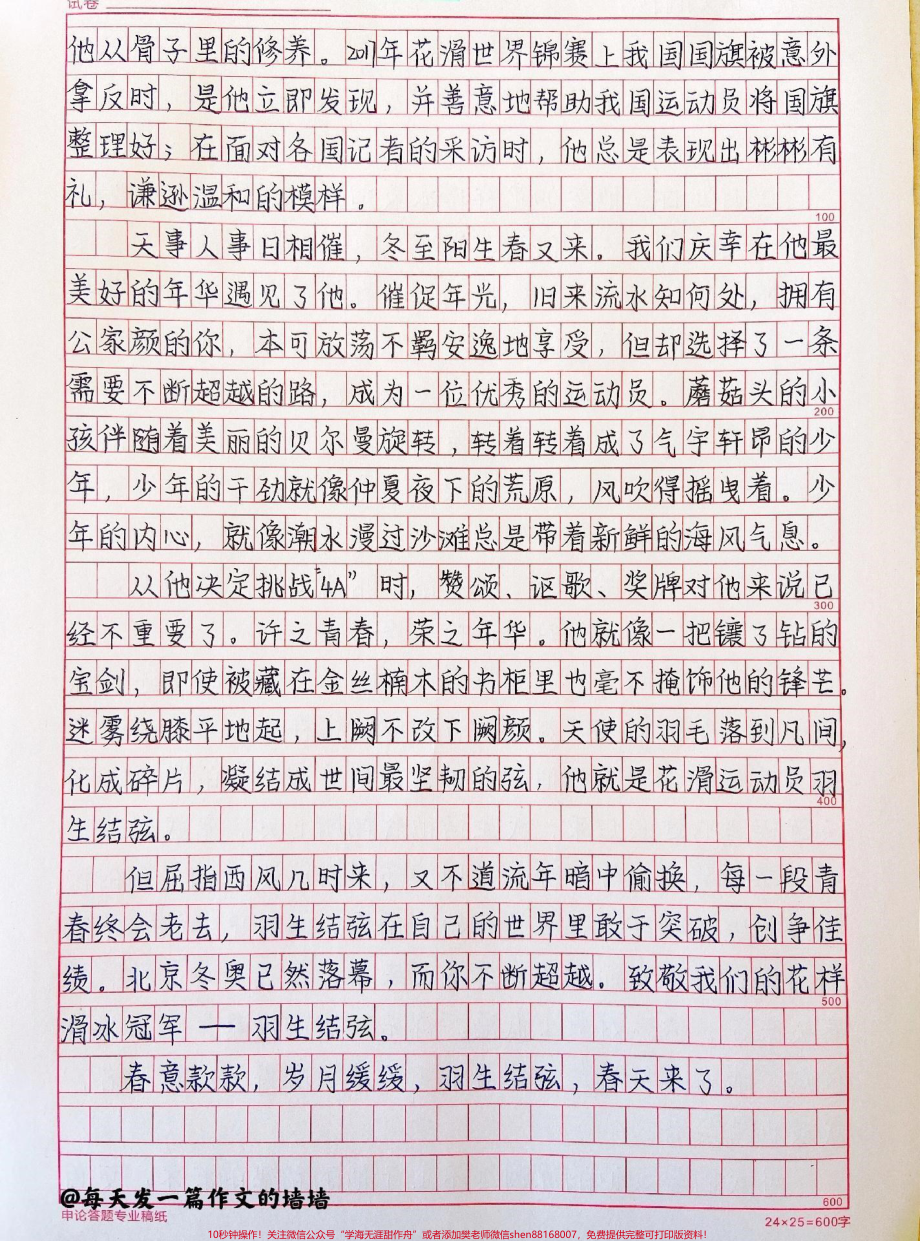 试卷
他从骨子里的修养。2011年花滑世界锦赛上我国国旗被意外
拿反时，是他立即发现，并善意地帮助我国运动员将国旗
整理好；在面对各国记者的采访时，他总是表现出彬彬有
礼，谦逊温和的模样。
100
天事人事日相催，冬至阳生春又来。我们庆幸在他最
美好的年华遇见了他。催促年光，旧来流水知何处，拥有
公家颜的你，本可放荡不羁安逸地享受，但却选择了一条
需要不断超越的路，成为一位优秀的运动员。蘑菇头的小
200
孩伴随着美丽的贝尔曼旋转，转着转着成了气宇轩昂的少
年，少年的干劲就像仲夏夜下的荒原，风吹得摇曳着。少
年的内心，就像潮水漫过沙滩总是带着新鲜的海风气息。
从他决定挑战“4A”时，赞颂、讴歌、奖牌对他来说已
300
经不重要了。许之青春，荣之年华。他就像一把镶了钻的
宝剑，即使被藏在金丝楠木的书柜里也毫不掩饰他的锋芒。
迷雾绕膝平地起，上阙不改下阙颜。天使的羽毛落到凡间，
化成碎片，凝结成世间最坚韧的弦，他就是花滑运动员羽
400
生结弦。
但屈指西风几时来，又不道流年暗中偷换，每一段青
春终会老去，羽生结弦在自己的世界里敢于突破，创争佳
绩。北京冬奥已然落幕，而你不断超越。致敬我们的花样
500
滑冰冠军——羽生结弦。
春意款款，岁月缓缓，羽生结弦，春天来了。
600
@每天发一篇作文的墙墙
申论答题专业稿纸
24×25=600字
10秒钟操作！关注微信公众号“学海无涯甜作舟”或者添加樊老师微信shen88168007，免费提供完整可打印版资料！